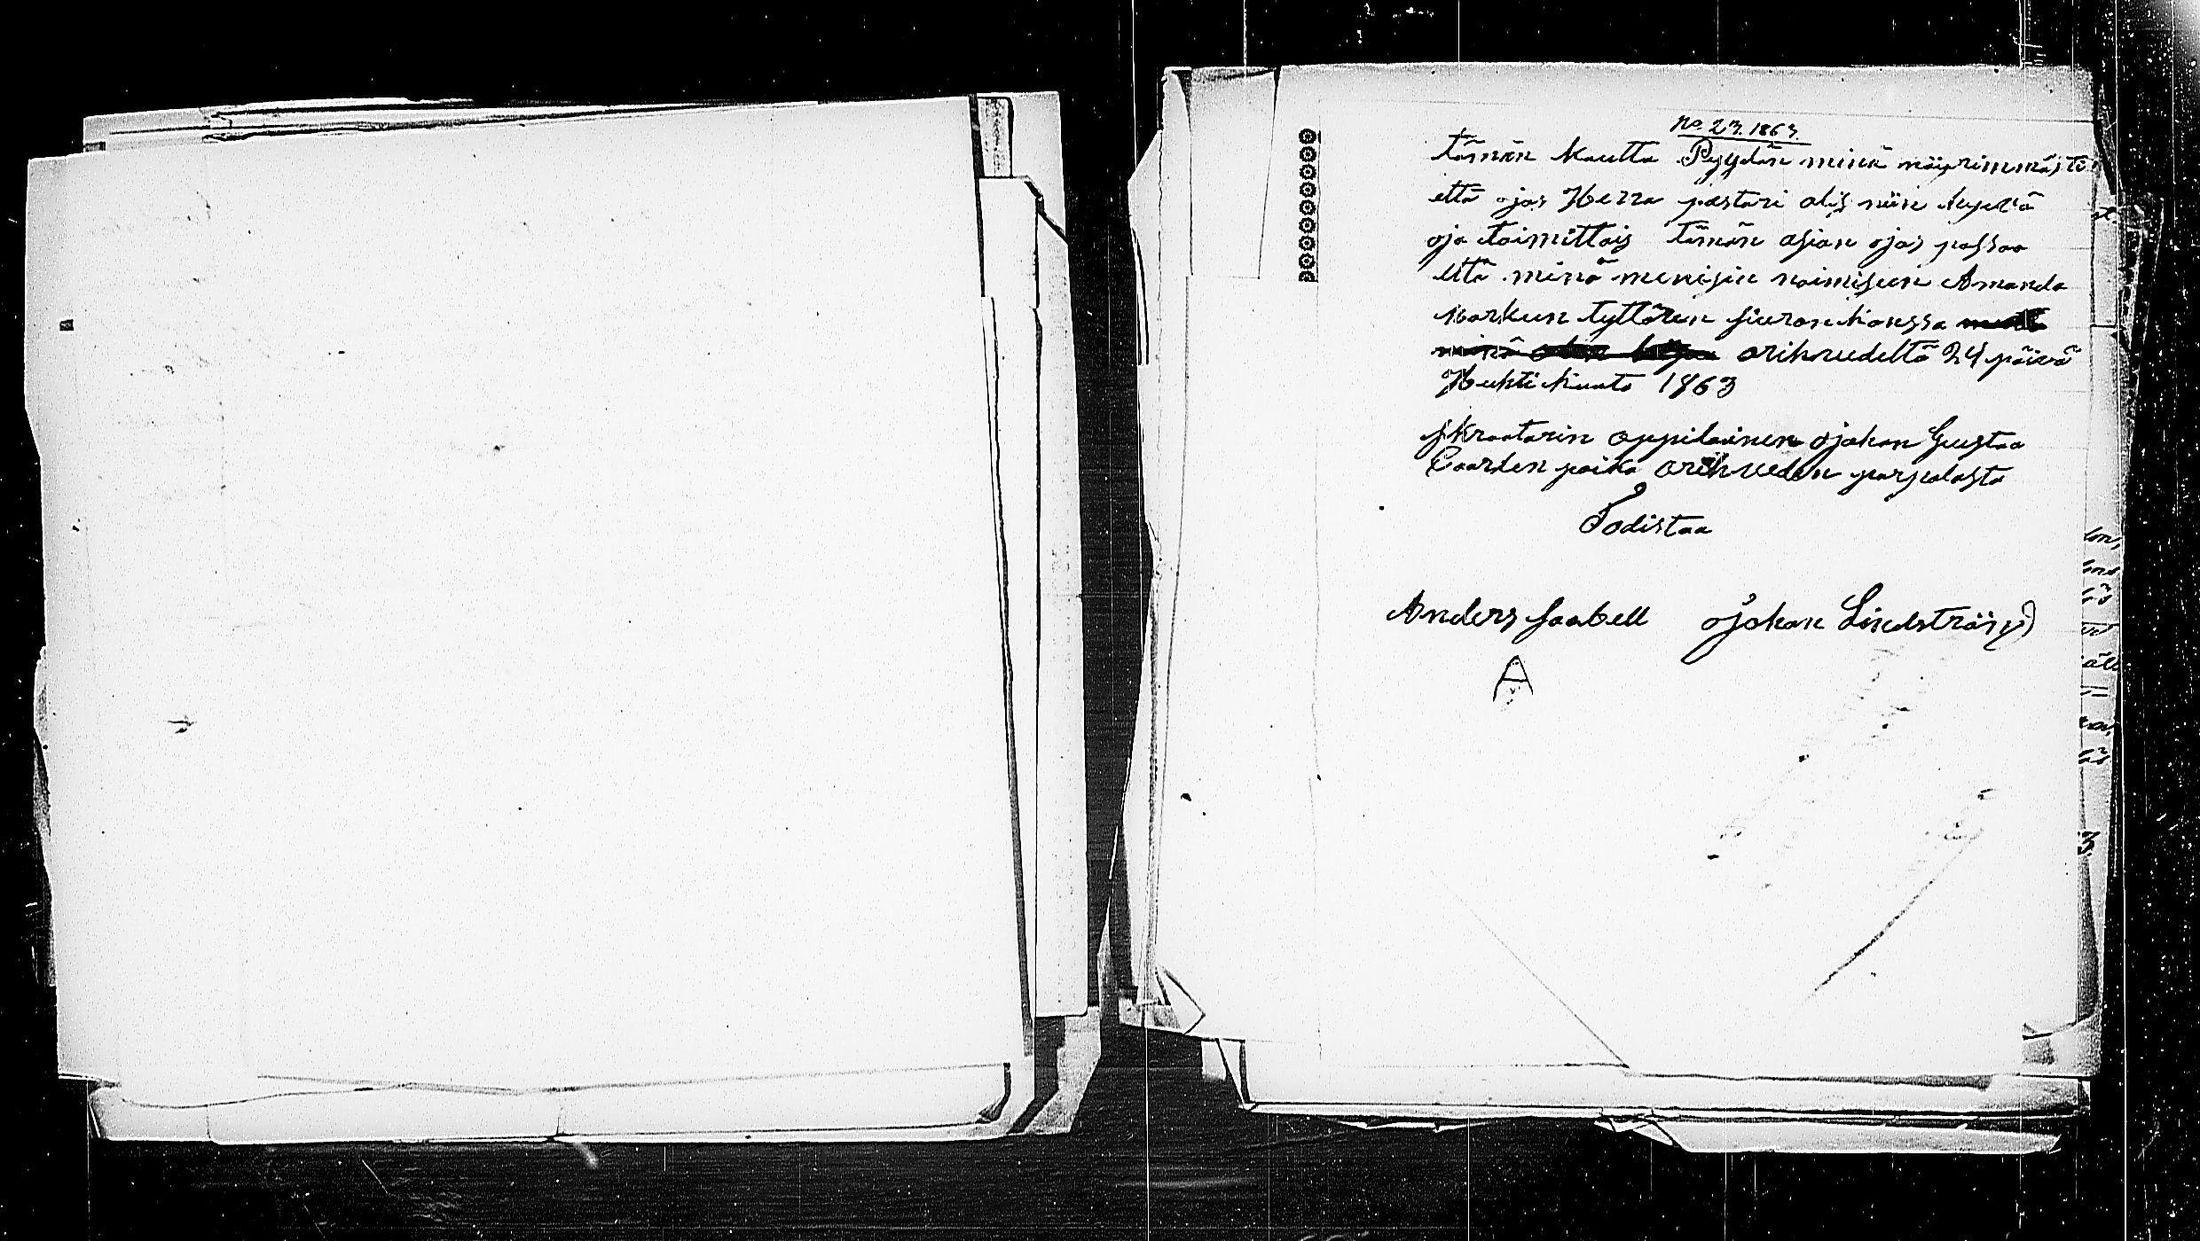 No. 23. 1863.
tämän kautta Pyydän minä nöyrimmästi
että ojas Herra pastari olis niin hyvä
oja toimittais tämän asian ojas passaa
että minä menisin naimiseen Amanda
Markun tyttären kansssa
orihvedeltä 24 päivä
Huhti kuuta 1863
skraatarin oppilainen ojohan Gustaa
Caarlen poika orihveden parpalasta
Todistaa
Anders ojohan Lindsträn
A